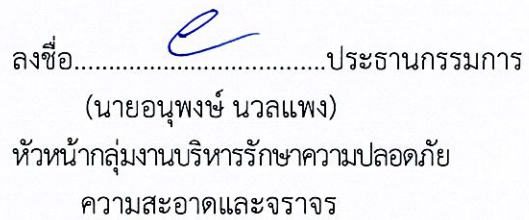 ลงชื่อ....................................ประธานกรรมการ
(นายอนุพงษ์ นวลแพง)
หัวหน้ากลุ่มงานบริหารรักษาความปลอดภัย
ความสะอาดและจราจร